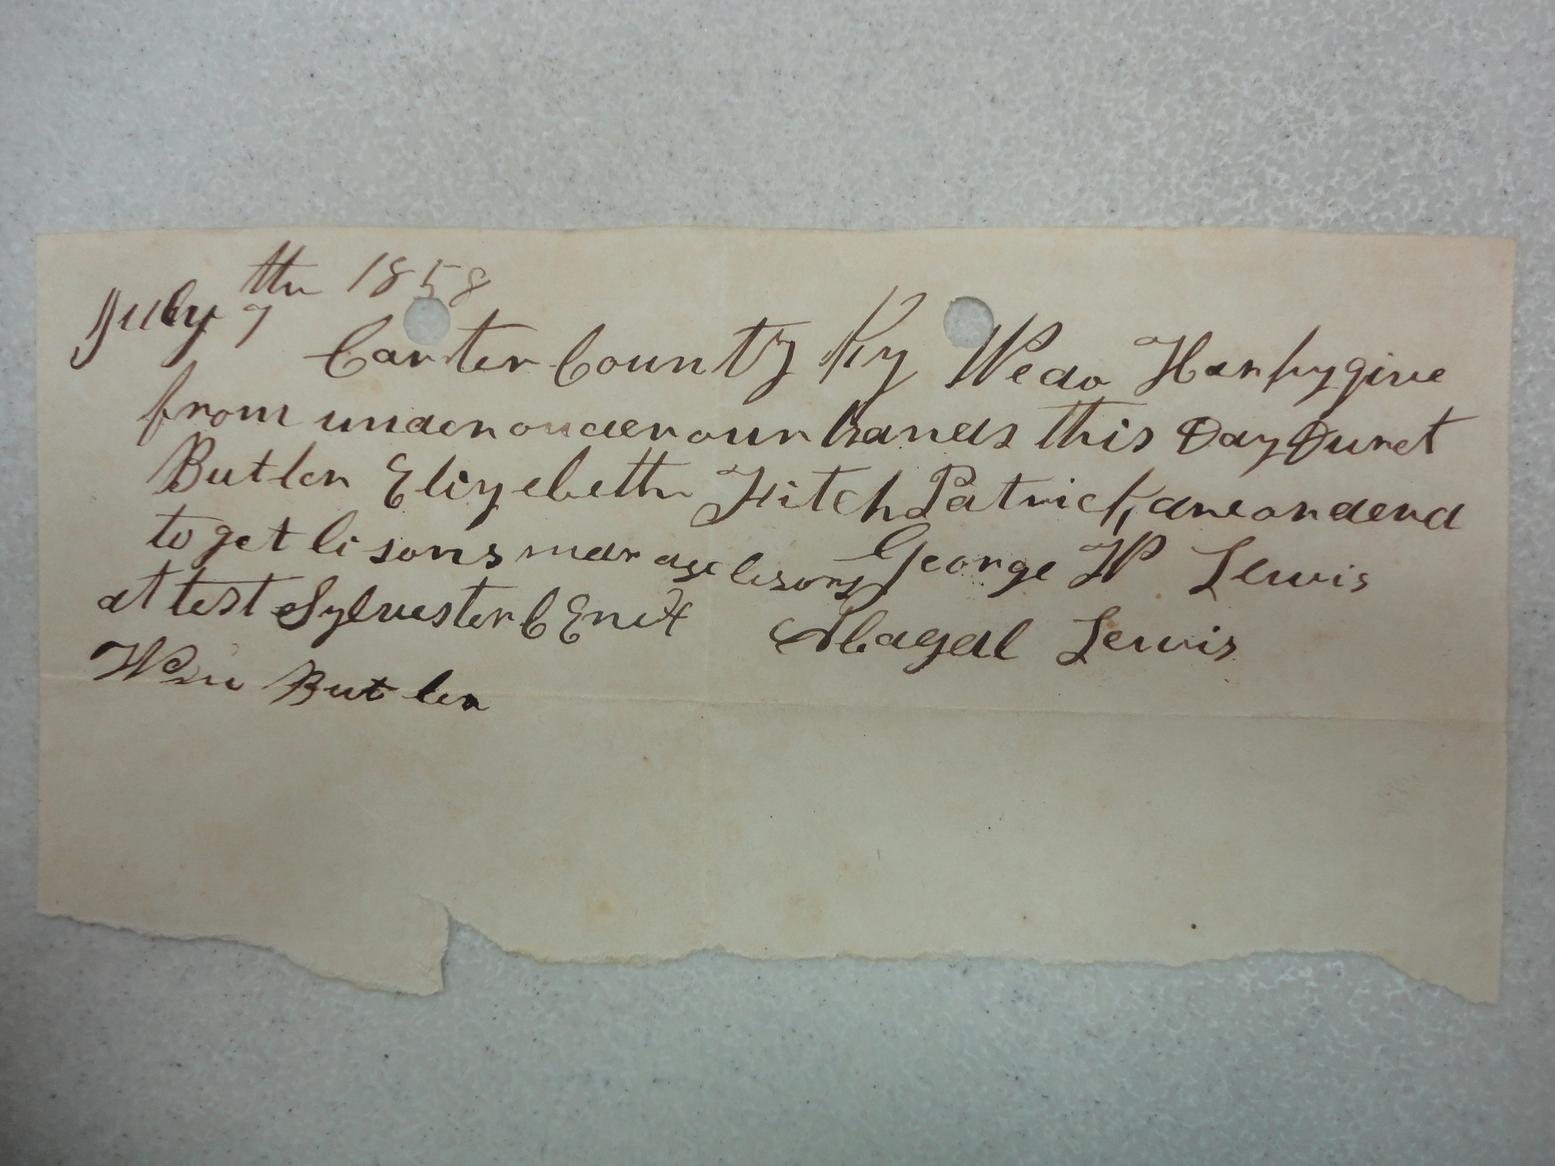 July 7th 1858
Carter County Ky We do Harby give
from under ouder our hands this Day Duret
Butler Elizebeth Fitch Patrick are orderd
to get lisons marage lisons George W Lewis
attest Sylvester C Enix Abagal Lewis
Wm Butler